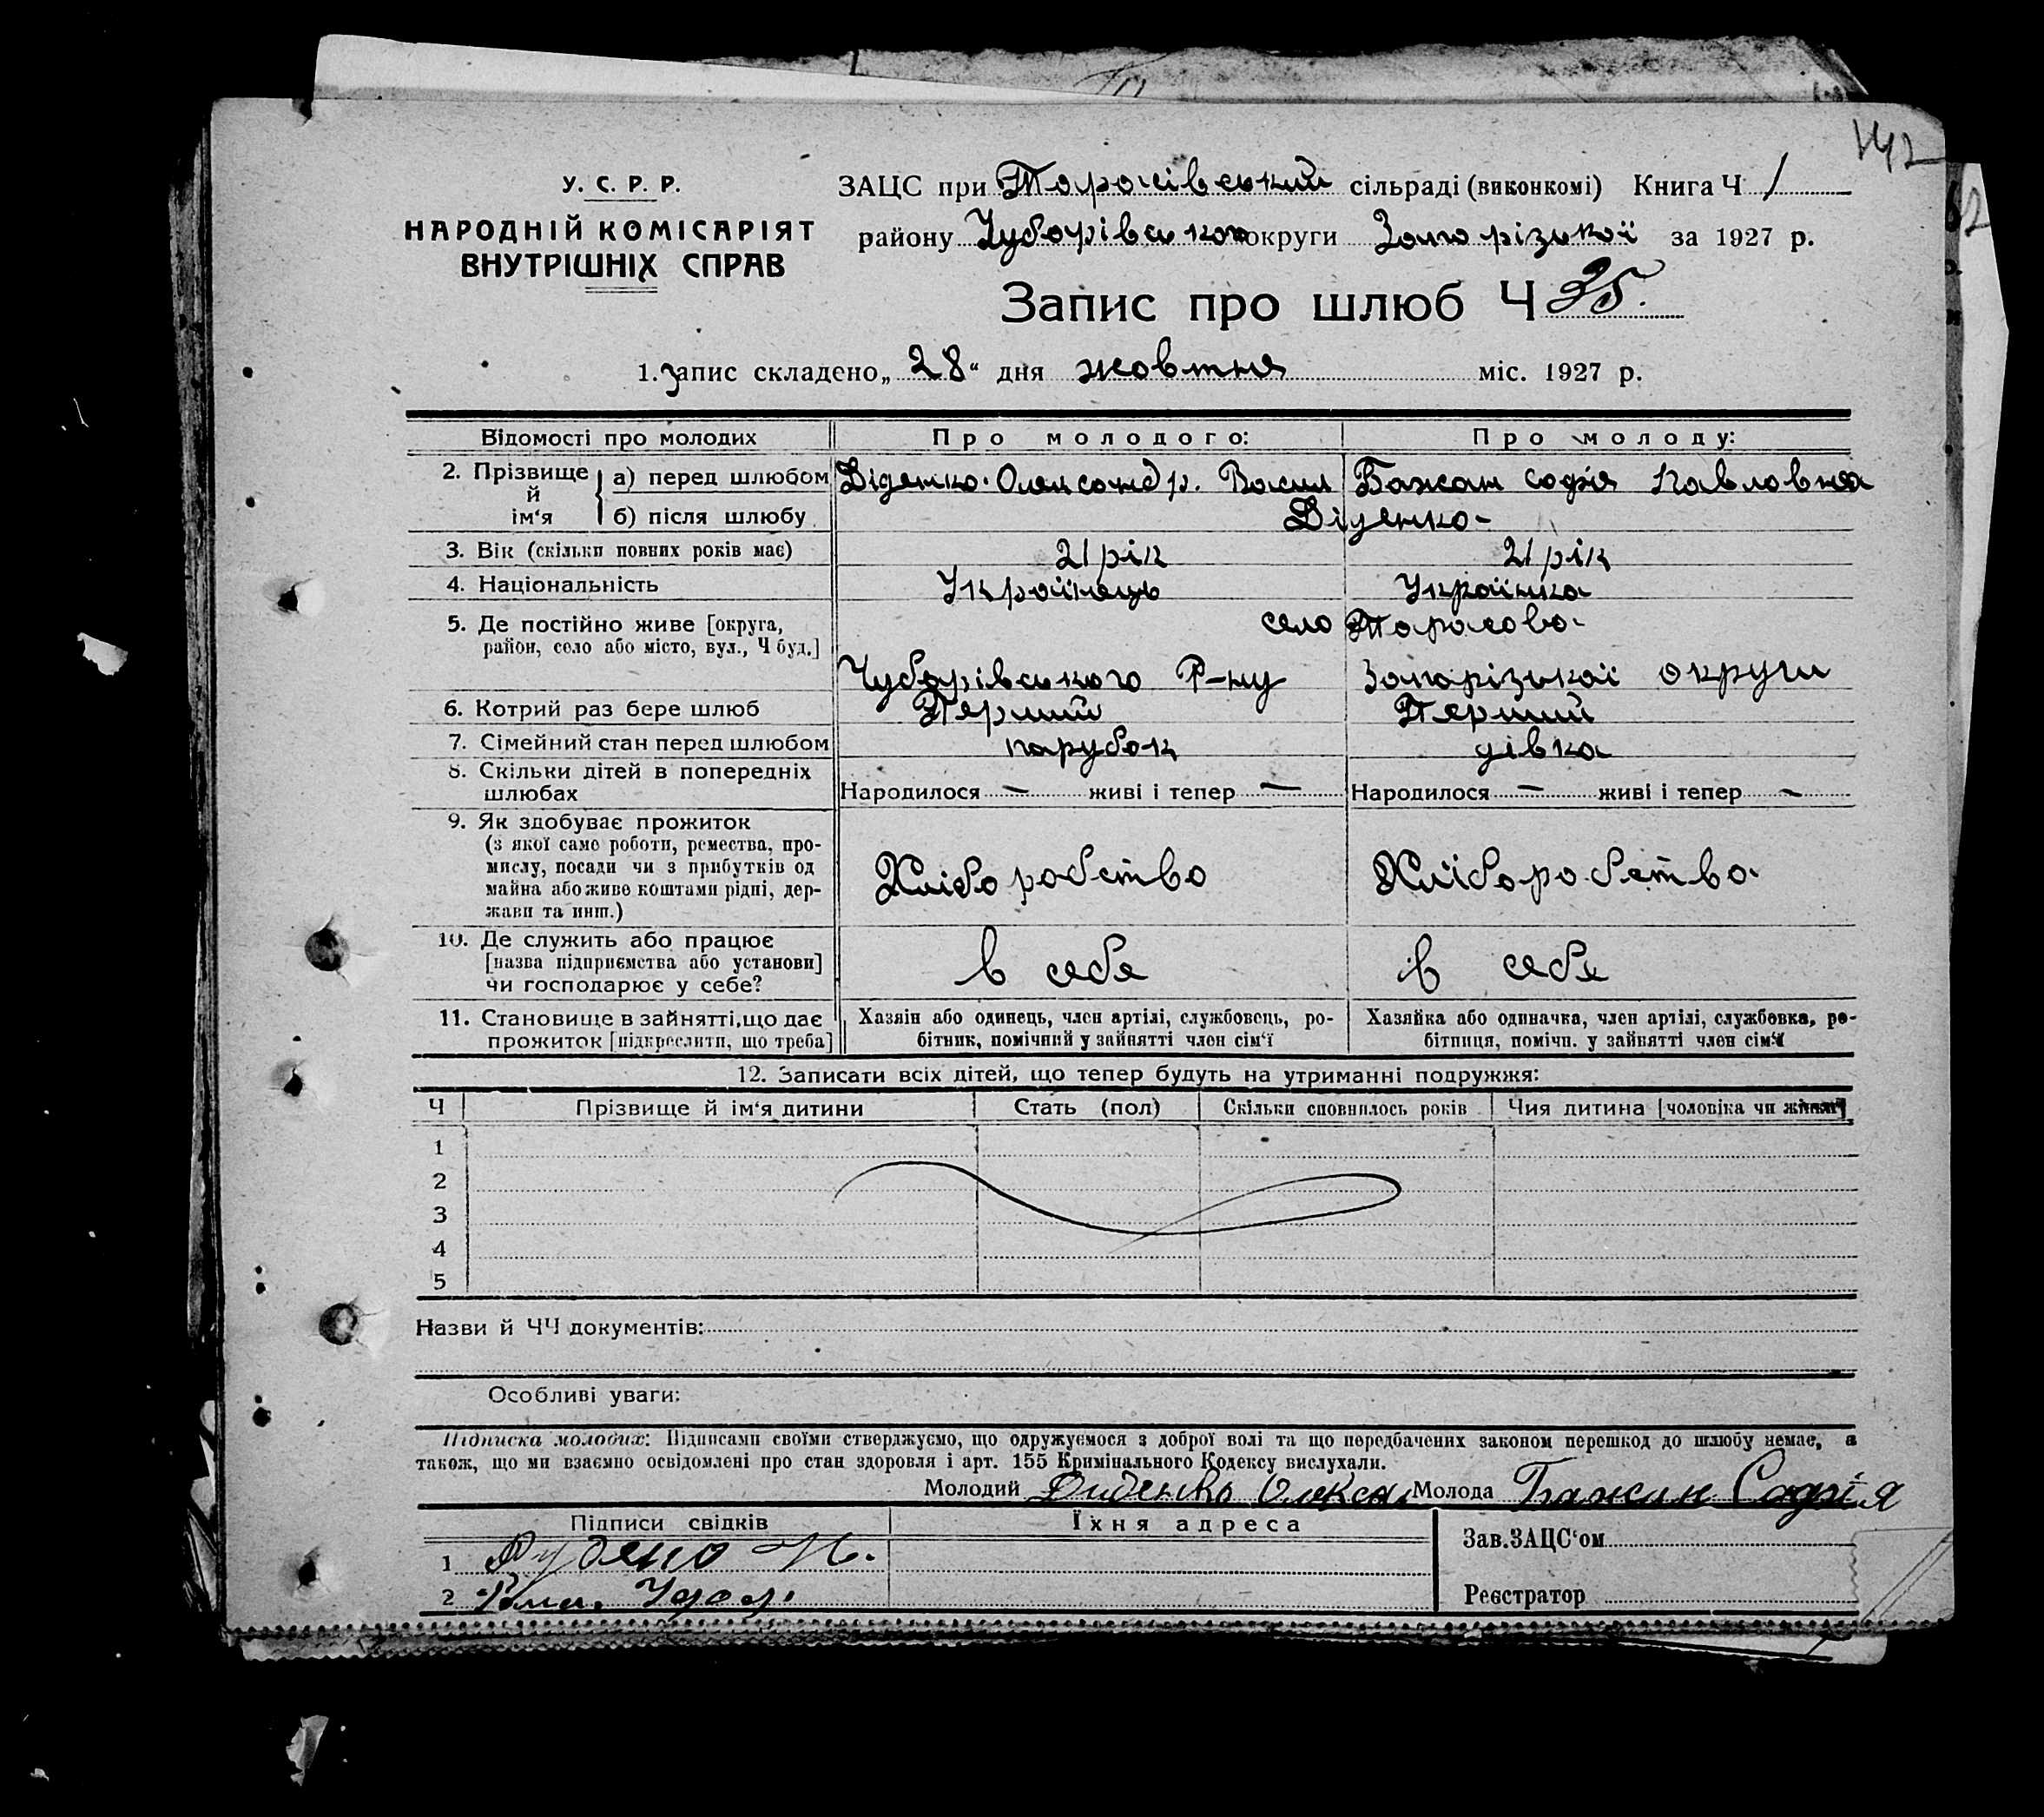 142
У. С. Р. Р.
НАРОДНІЙ КОМІСАРІЯТ
ВНУТРІШНІХ СПРАВ
ЗАЦС при Тарасівський сільраді (виконкомі) Книга Ч 1
району Чубарівського округи Запорізької за 1927 р.
Запис про шлюб Ч 35.
1. Запис складено „28“ дня жовтня міс. 1927 р.
Відомості про молодих Про молодого: Про молоду:
2. Прізвище й ім‘я а) перед шлюбом Діденко Олександр. Васил Бажан Софія Павловна
б) після шлюбу Діденко-
3. Вік (скільки повних років має) 21 рік 21 рік
4. Національність Українець Українка
5. Де постійно живе [округа, село Тарасово-
район, село або місто, вул., Ч буд.]
Чубарівського Р-ну Запорізької округи
6. Котрий раз бере шлюб Перший Перший
7. Сімейний стан перед шлюбом парубок дівка
8. Скільки дітей в попередніх
шлюбах Народилося — живі і тепер — Народилося — живі і тепер —
9. Як здобуває прожиток
(з якої саме роботи, ремества, про-
мислу, посади чи з прибутків од
майна або живе коштами рідні, дер-
жави та инш.)
Хліборобство Хлїборобство.
10. Де служить або працює
[назва підприємства або установи]
чи господарює у себе?
в себе в себе
11. Становище в зайнятті, що дає
прожиток [підкреслити, що треба]
Хазяїн або одинець, член артілі, службовець, ро-
бітник, помічний у зайнятті член сім‘ї
Хазяйка або одиначка, член артілі, службовка, ро-
бітниця, помічн. у зайнятті член сім‘ї
12. Записати всіх дітей, що тепер будуть на утриманні подружжя:
Ч Прізвище й ім‘я дитини Стать (пол) Скільки сповнилось років Чия дитина [чоловіка чи жінки]
1
2
3
4
5
Назви й ЧЧ документів:
Особливі уваги:
Підписка молодих: Підписами своїми стверджуємо, що одружуємося з доброї волі та що передбачених законом перешкод до шлюбу немає, а
також, що ми взаємно освідомлені про стан здоровля і арт. 155 Кримінального Кодексу вислухали.
Молодий Диденко Олекса Молода Бажан Софія
Підписи свідків Їхня адреса
Зав. ЗАЦС‘ом
1
2
Реєстратор